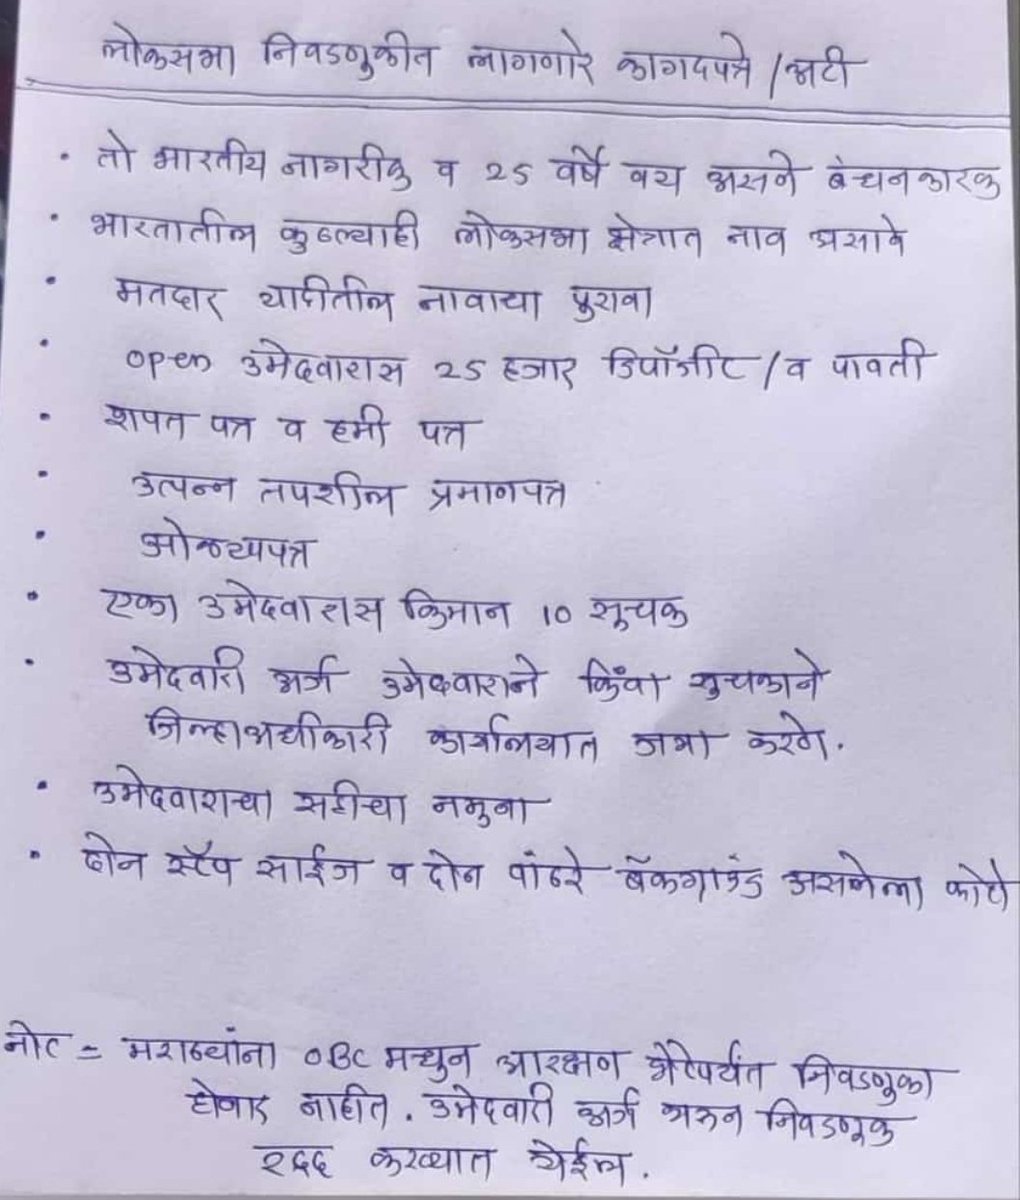 लोकसभा निवडणुकीत लागणारे कागदपत्रे / अटी
• तो भारतीय नागरीक व 25 वर्षे वय असणे बंधनकारक
• भारतातील कुठल्याही लोकसभा क्षेत्रात नाव असावे
• मतदार यादीतील नावाचा पुरावा
• open उमेदवारास 25 हजार डिपॉजीट / व पावती
• शपत पत्र व हमी पत्र
• उत्पन्न तपशील प्रमाणपत्र
• ओळखपत्र
• एका उमेदवारास किमान 10 सूचक
• उमेदवारी अर्ज उमेदवाराने किंवा सुचकाने
जिल्हाअधीकारी कार्यालयात जमा करणे.
• उमेदवाराचा सहीचा नमुना
• दोन स्टॅंप साईज व दोन पांढरे बॅकग्राउंड असलेला फोटो
नोट = मराठ्यांना OBC मधुन आरक्षण भेटेपर्यंत निवडणूका
होणार नाहीत. उमेदवारी अर्ज भरुन निवडणूक
रद्द करण्यात येईल.